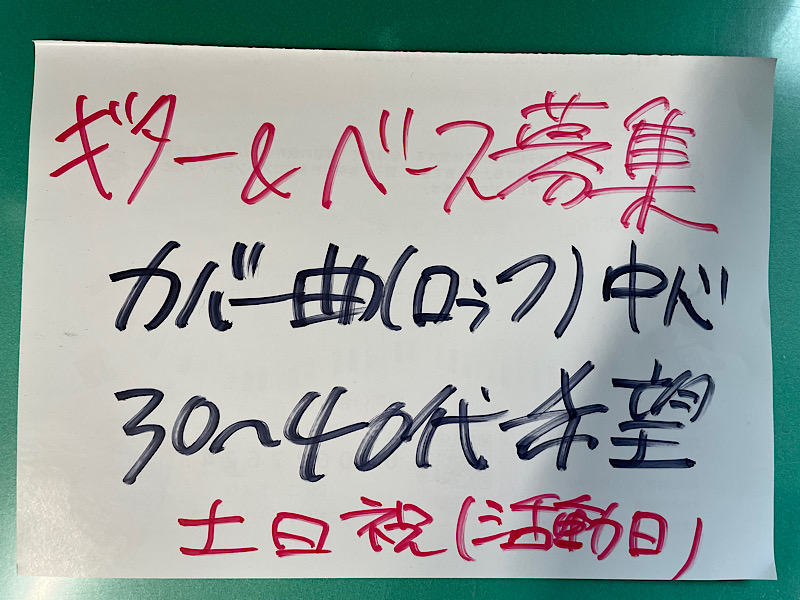 ギター&ベース募集
カバー曲(ロック)中心
30~40代希望
土日祝(活動日)